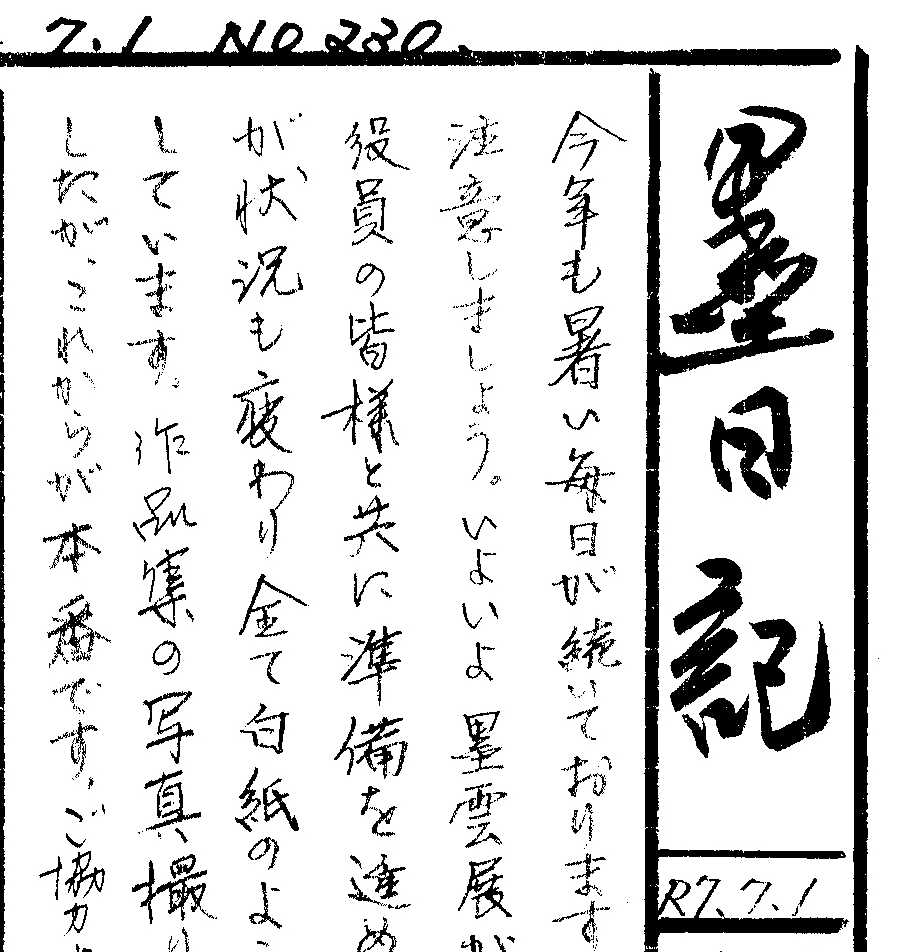 7.1 NO 230.
墨日記
R7.7.1
今年も暑い毎日が続いております
注意しましょう。いよいよ墨雲展が
役員の皆様と共に準備を進め
が状況も変わり全て白紙のよ
しています。作品集の写真撮り
したが、これからが本番です。ご協力